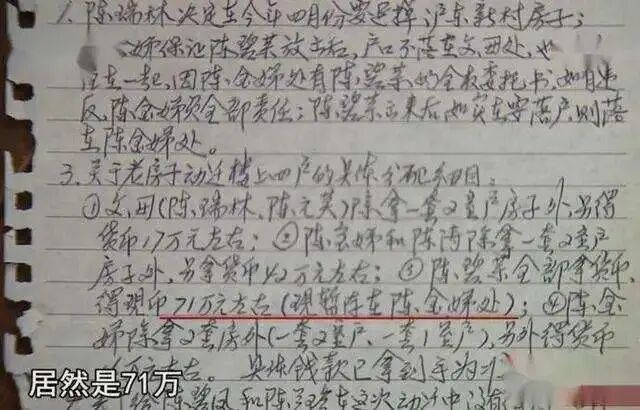 1、陈瑞林决定在今年四月份要选择沪东新村房子;
姊保证陈碧菜放出后,户口不落在父母处,也
住在一起,因陈金娣处有陈碧菜的全权委托书,如有违
反,陈金娣负全部责任;陈碧菜出来后,如实在要落户,则落
在陈金娣处。
3、关于老房子动迁楼上四户的具体分配
①父、母(陈瑞林、陈元英)除拿一套2室户房子外,另得
货币17万元左右;②陈 娣和陈 除拿一套2室户
房子外,另拿货币42万元左右;③陈碧菜全部拿货币,
得现币71万元左右(现暂存在陈金娣处);④陈金
娣除拿2套房外(一套2室户、一套1室户),另外得货币
万元左右。具体钱款已拿到手为
陈碧凤和陈 在这次动迁中没
居然是71万